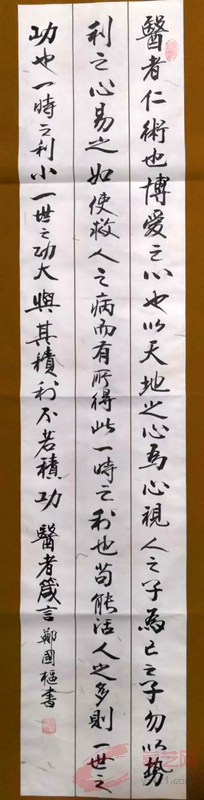 醫者仁術也博愛之心也以天地之心為心視人之子為己之子勿以勢
利之心易之如使救人之病而有所得此一時之利也苟能活人之多則一世之
功也一時之利小一世之功大與其積利不若積功 醫者箴言 鄭國樞書